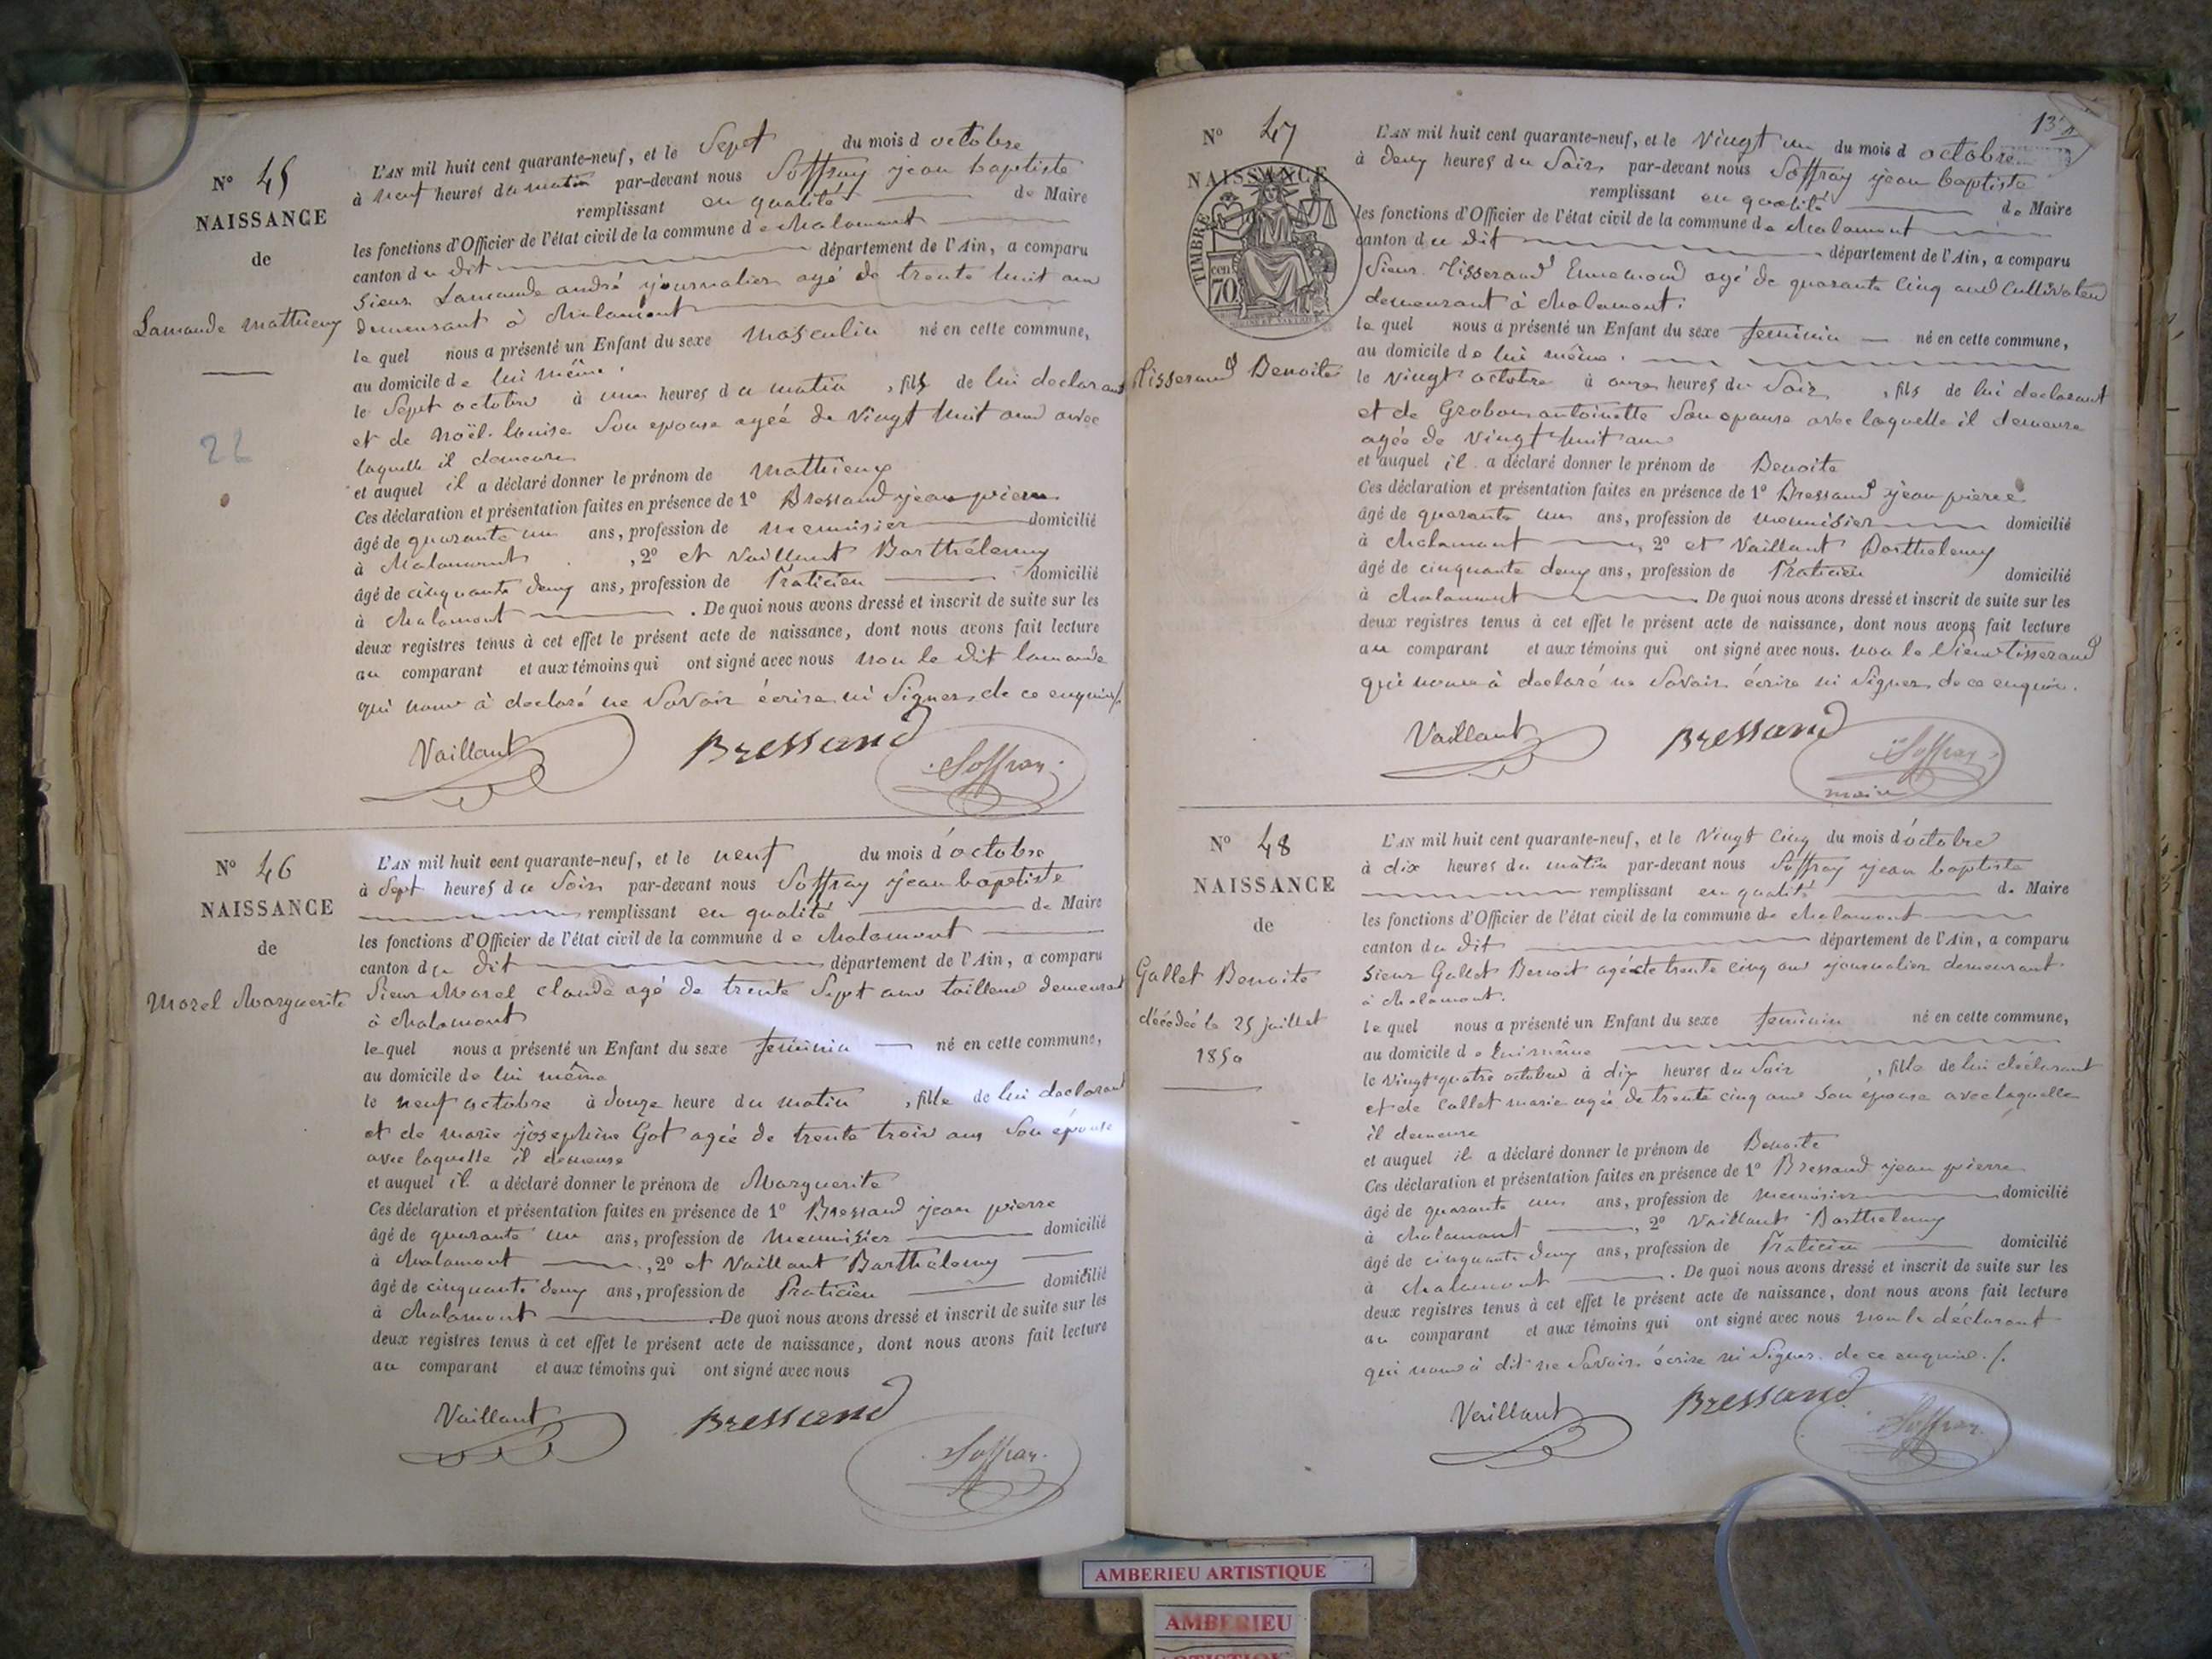 N° 45
NAISSANCE
de
Lamande mathieu
22
L'AN mil huit cent quarante-neuf, et le Sept du mois d octobre
à neuf heures du matin par-devant nous Soffray jean baptiste
remplissant en qualité de Maire
les fonctions d'Officier de l'état civil de la commune de chalamont
canton du dit département de l'Ain, a comparu
Sieur Lamande andré journalier agé de trente huit ans
demeurant à chalamont
lequel nous a présenté un Enfant du sexe masculin né en cette commune,
au domicile de lui même.
le Sept octobre à une heures du matin, fils de lui declarant
et de noël louise Son epouse agée de vingt huit ans avec
laquelle il demeure
et auquel il a déclaré donner le prénom de mathieu
Ces déclaration et présentation faites en présence de 1° Bressand jean pierre
âgé de quarante un ans, profession de menuisier domicilié
à chalamont, 2° et Vaillant Barthélemy
âgé de cinquante deux ans, profession de Praticien domicilié
à chalamont. De quoi nous avons dressé et inscrit de suite sur les
deux registres tenus à cet effet le présent acte de naissance, dont nous avons fait lecture
au comparant et aux témoins qui ont signé avec nous non le dit lamande
qui nous à declaré ne Savoir écrire ni Signer de ce enquis
Vaillant Bressand Soffray
N° 46
NAISSANCE
de
Morel Marguerite
L'AN mil huit cent quarante-neuf, et le neuf du mois d'octobre
à Sept heures du Soir par-devant nous Soffray jean baptiste
remplissant en qualité de Maire
les fonctions d'Officier de l'état civil de la commune de chalamont
canton du dit département de l'Ain, a comparu
Sieur Morel claude agé de trente Sept ans tailleur demeurant
à chalamont
lequel nous a présenté un Enfant du sexe feminin né en cette commune,
au domicile de lui même
le neuf octobre à douze heure du matin, fille de lui declarant
et de marie josephine Got agée de trente trois ans Son épouse
avec laquelle il demeure
et auquel il a déclaré donner le prénom de Marguerite
Ces déclaration et présentation faites en présence de 1° Bressand jean pierre
âgé de quarante un ans, profession de menuisier domicilié
à chalamont, 2° et Vaillant Barthélemy
âgé de cinquante deux ans, profession de Praticien domicilié
à chalamont. De quoi nous avons dressé et inscrit de suite sur les
deux registres tenus à cet effet le présent acte de naissance, dont nous avons fait lecture
au comparant et aux témoins qui ont signé avec nous
Vaillant Bressand Soffray
137
N° 47
NAISSANCE
TIMBRE
cen 70
Tisserand Benoite
L'AN mil huit cent quarante-neuf, et le Vingt un du mois d octobre
à deux heures du Soir par-devant nous Soffray jean baptiste
remplissant en qualité de Maire
les fonctions d'Officier de l'état civil de la commune de chalamont
canton du dit département de l'Ain, a comparu
Sieur Tisserand Ennemond agé de quarante Cinq ans Cultivateur
demeurant à chalamont.
lequel nous a présenté un Enfant du sexe feminin né en cette commune,
au domicile de lui même.
le Vingt octobre à onze heures du Soir, fils de lui declarant
et de Grobon antoinette Son epouse avec laquelle il demeure
agée de vingt huit ans
et auquel il a déclaré donner le prénom de Benoite
Ces déclaration et présentation faites en présence de 1° Bressand jean pierre
âgé de quarante un ans, profession de menuisier domicilié
à chalamont, 2° et Vaillant Barthelemy
âgé de cinquante deux ans, profession de Praticien domicilié
à chalamont De quoi nous avons dressé et inscrit de suite sur les
deux registres tenus à cet effet le présent acte de naissance, dont nous avons fait lecture
au comparant et aux témoins qui ont signé avec nous. non le Sieur tisserand
qui nous à declaré ne Savoir écrire ni Signer de ce enquis.
Vaillant Bressand Soffray
maire
N° 48
NAISSANCE
de
Gallet Benoite
décédée le 25 juillet
1850
L'AN mil huit cent quarante-neuf, et le Vingt Cinq du mois d'octobre
à dix heures du matin par-devant nous Soffray jean baptiste
remplissant en qualité de Maire
les fonctions d'Officier de l'état civil de la commune de chalamont
canton du dit département de l'Ain, a comparu
Sieur Gallet Benoit agé de trente cinq ans journalier demeurant
à chalamont.
lequel nous a présenté un Enfant du sexe feminin né en cette commune,
au domicile de lui même
le Vingt quatre octobre à dix heures du Soir, fille de lui déclarant
et de Collet marie agée de trente cinq ans Son epouse avec laquelle
il demeure
et auquel il a déclaré donner le prénom de Benoite
Ces déclaration et présentation faites en présence de 1° Bressand jean pierre
âgé de quarante un ans, profession de menuisier domicilié
à chalamont, 2° Vaillant Barthelemy
âgé de cinquante deux ans, profession de Praticien domicilié
à chalamont. De quoi nous avons dressé et inscrit de suite sur les
deux registres tenus à cet effet le présent acte de naissance, dont nous avons fait lecture
au comparant et aux témoins qui ont signé avec nous non le déclarant
qui nous à dit ne Savoir écrire ni Signer. de ce enquis./.
Vaillant Bressand Soffray
AMBERIEU ARTISTIQUE
AMBERIEU
ARTISTIQUE